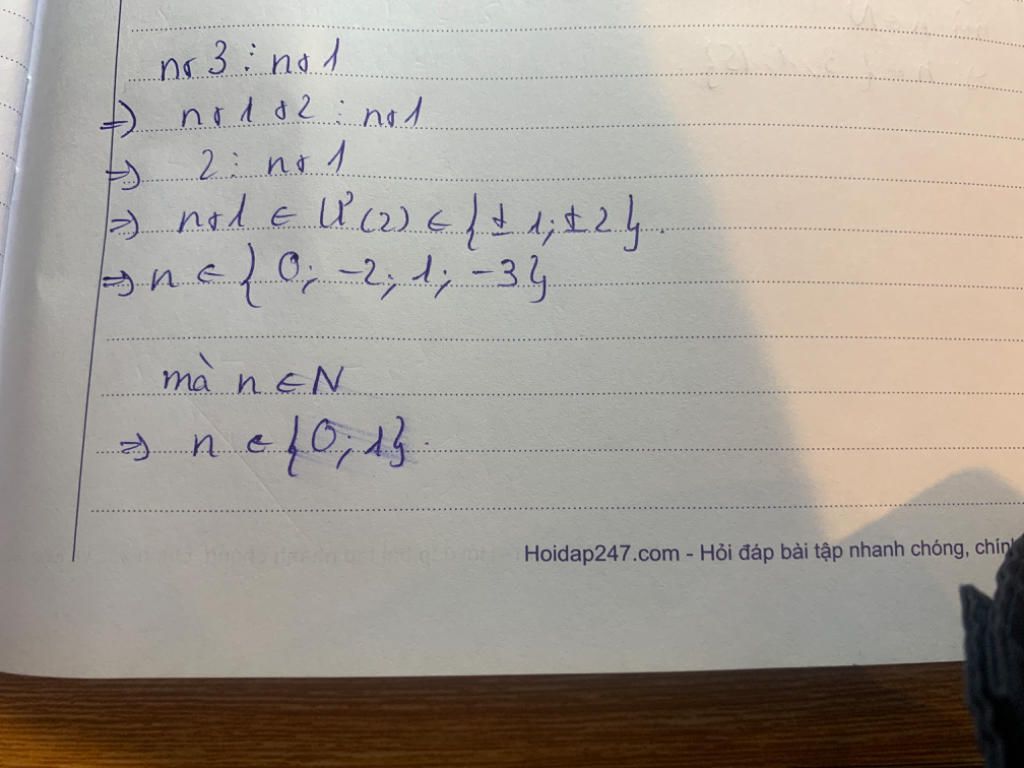 n+3 ⋮ n+1
=> n+1+2 ⋮ n+1
=> 2 ⋮ n+1
=> n+1 ∈ Ư(2) ∈ {±1; ±2}.
=> n ∈ {0; -2; 1; -3}
mà n ∈ N
=> n ∈ {0; 1}.
Hoidap247.com - Hỏi đáp bài tập nhanh chóng,